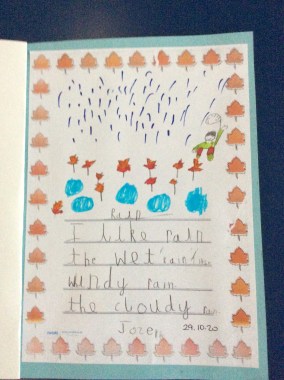 Rain
I like rain
the wet rain
windy rain
the cloudy rain
Joze
29.10.20